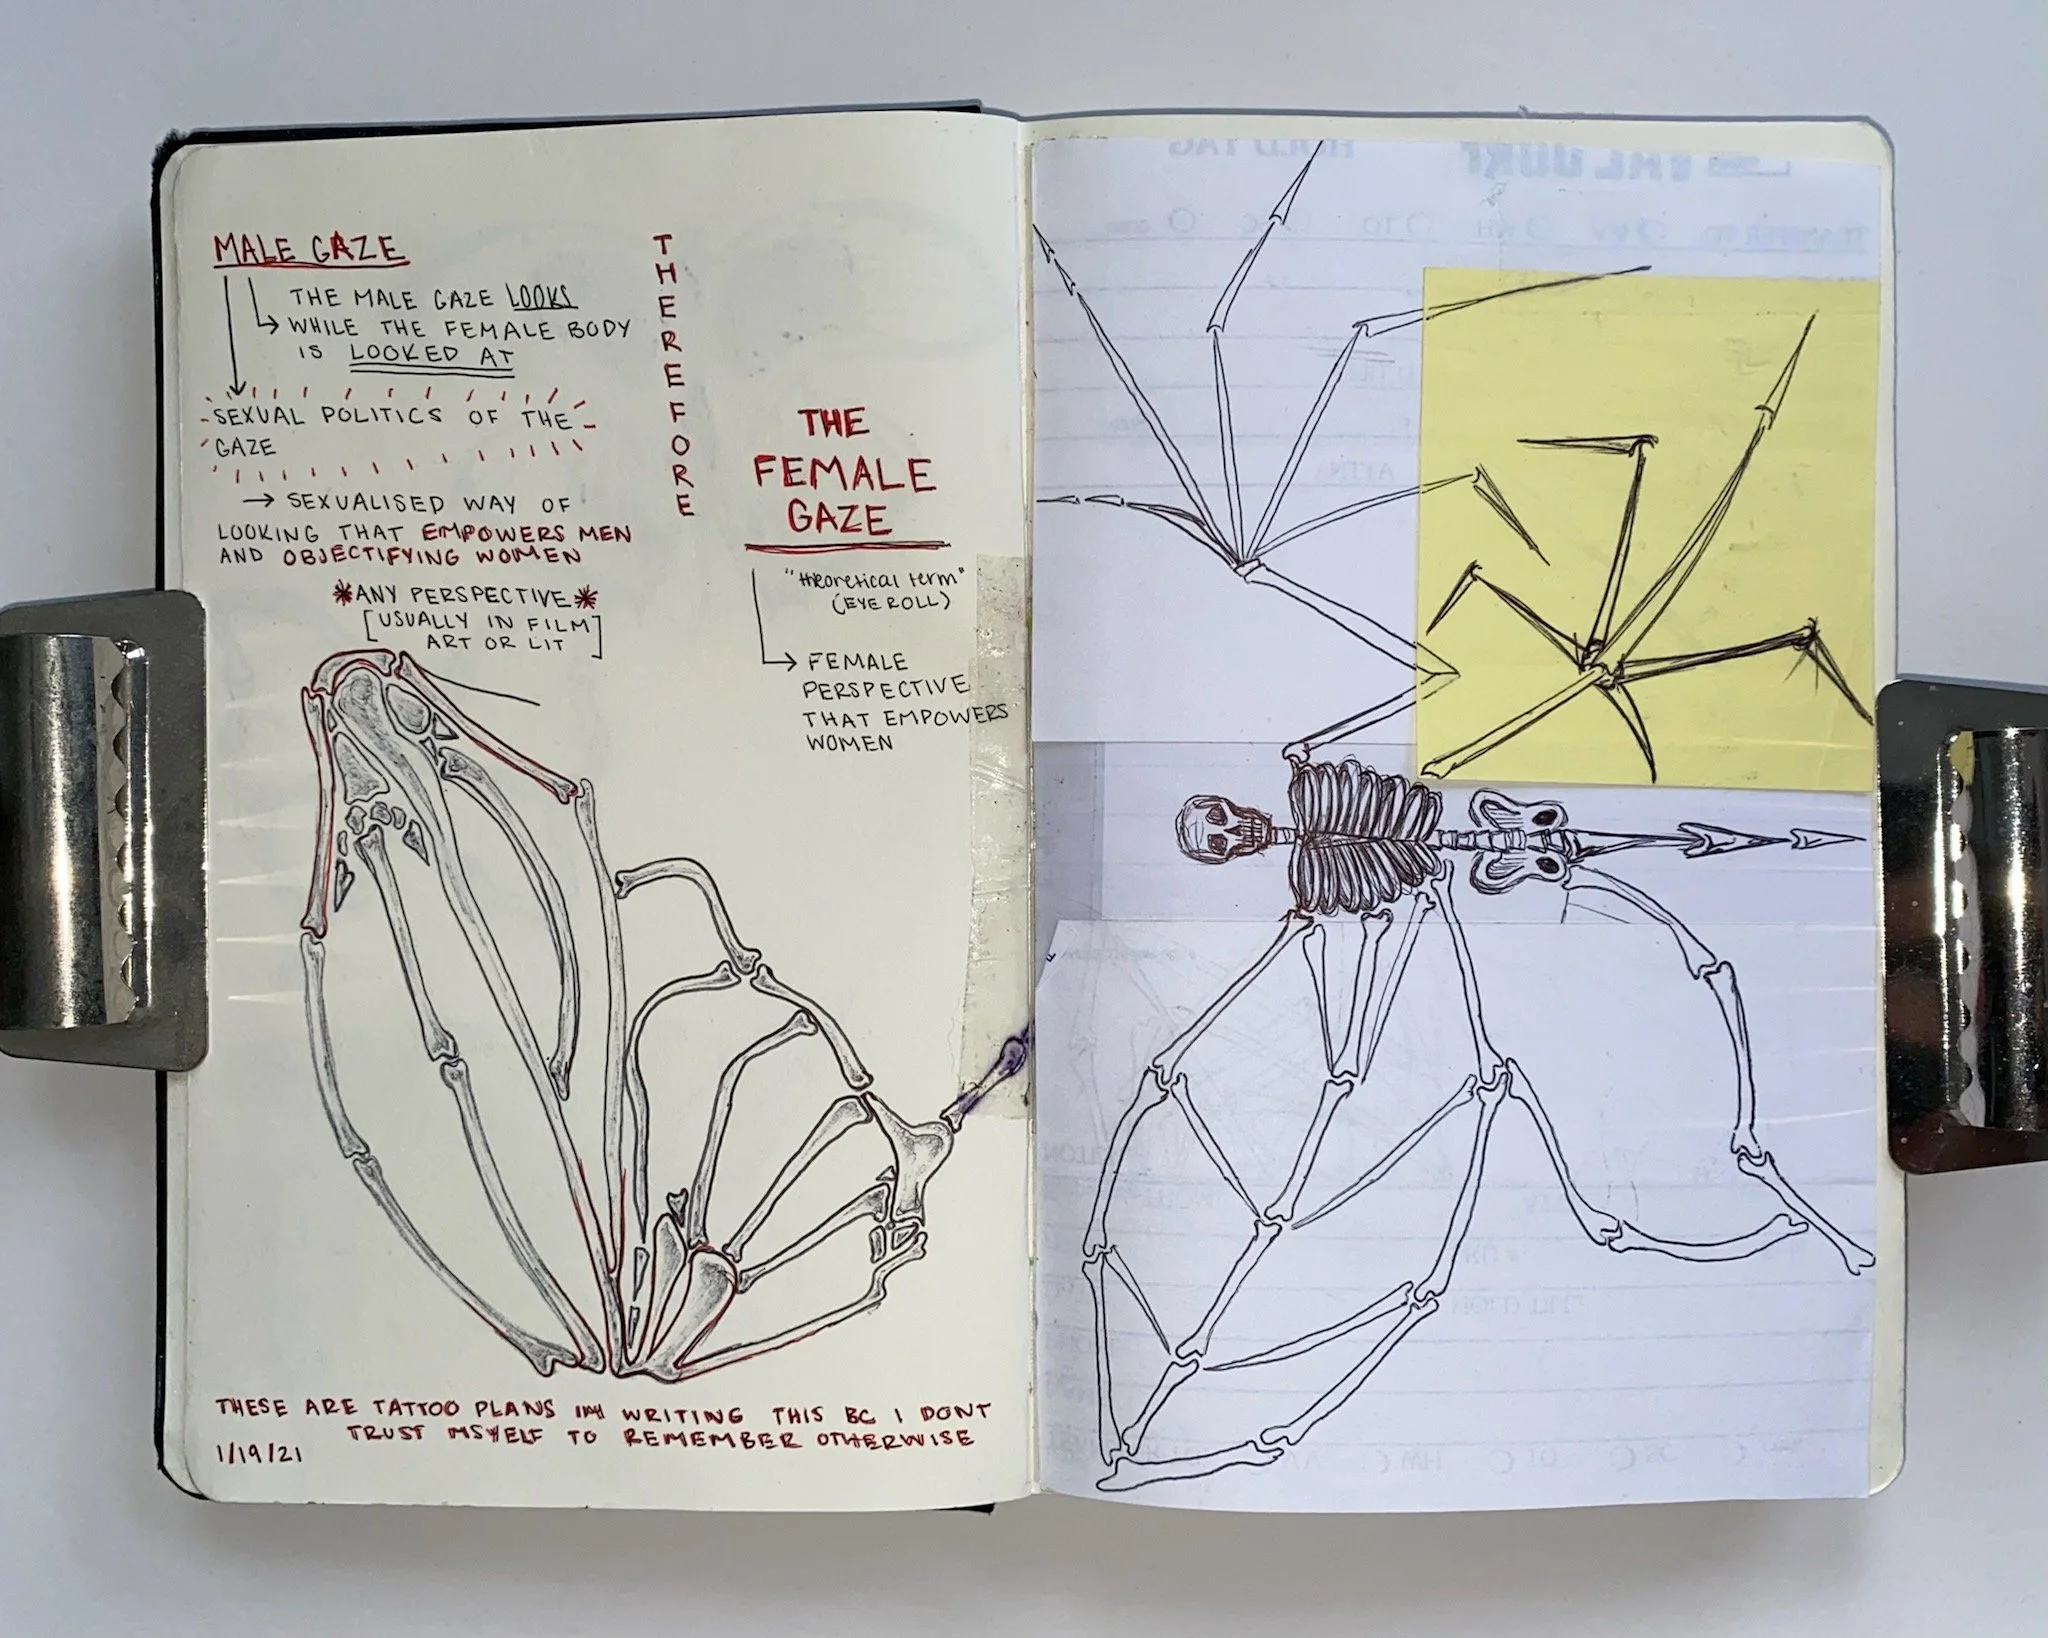 MALE GAZE
THE MALE GAZE LOOKS
WHILE THE FEMALE BODY
IS LOOKED AT
SEXUAL POLITICS OF THE
GAZE
→ SEXUALISED WAY OF
LOOKING THAT EMPOWERS MEN
AND OBJECTIFYING WOMEN
*ANY PERSPECTIVE*
[USUALLY IN FILM
ART OR LIT]
THEREFORE
THE
FEMALE
GAZE
"theoretical term"
(EYE ROLL)
FEMALE
PERSPECTIVE
THAT EMPOWERS
WOMEN
THESE ARE TATTOO PLANS WRITING THIS BC I DONT
TRUST MSYELF TO REMEMBER OTHERWISE
1/19/21
HOLD TAG